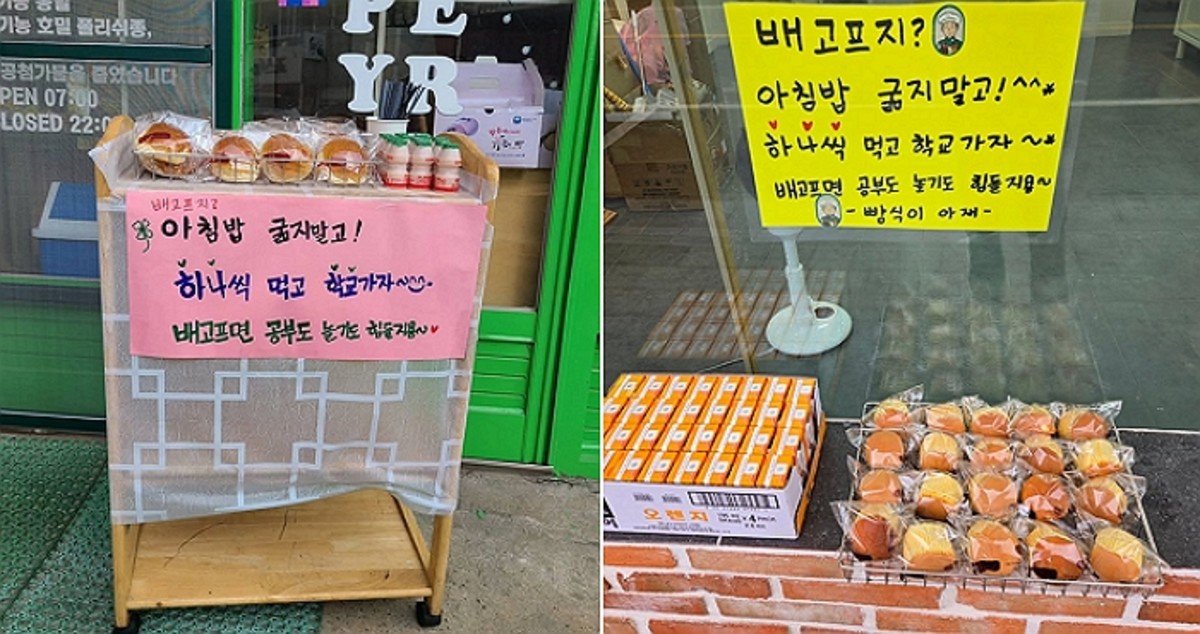 기능 호밀 폴리쉬종,
공첨가물을 줄였습니다
PEN 07:00
LOSED 22:0
PE
YR
배고프지?
아침밥 굶지말고!
하나씩 먹고 학교가자~^^
배고프면 공부도 놀기도 힘들지욤~♥
배고프지?
아침밥 굶지말고!^^*
하나씩 먹고 학교가자~*
배고프면 공부도 놀기도 힘들지욤~
-빵식이 아재-
오렌지